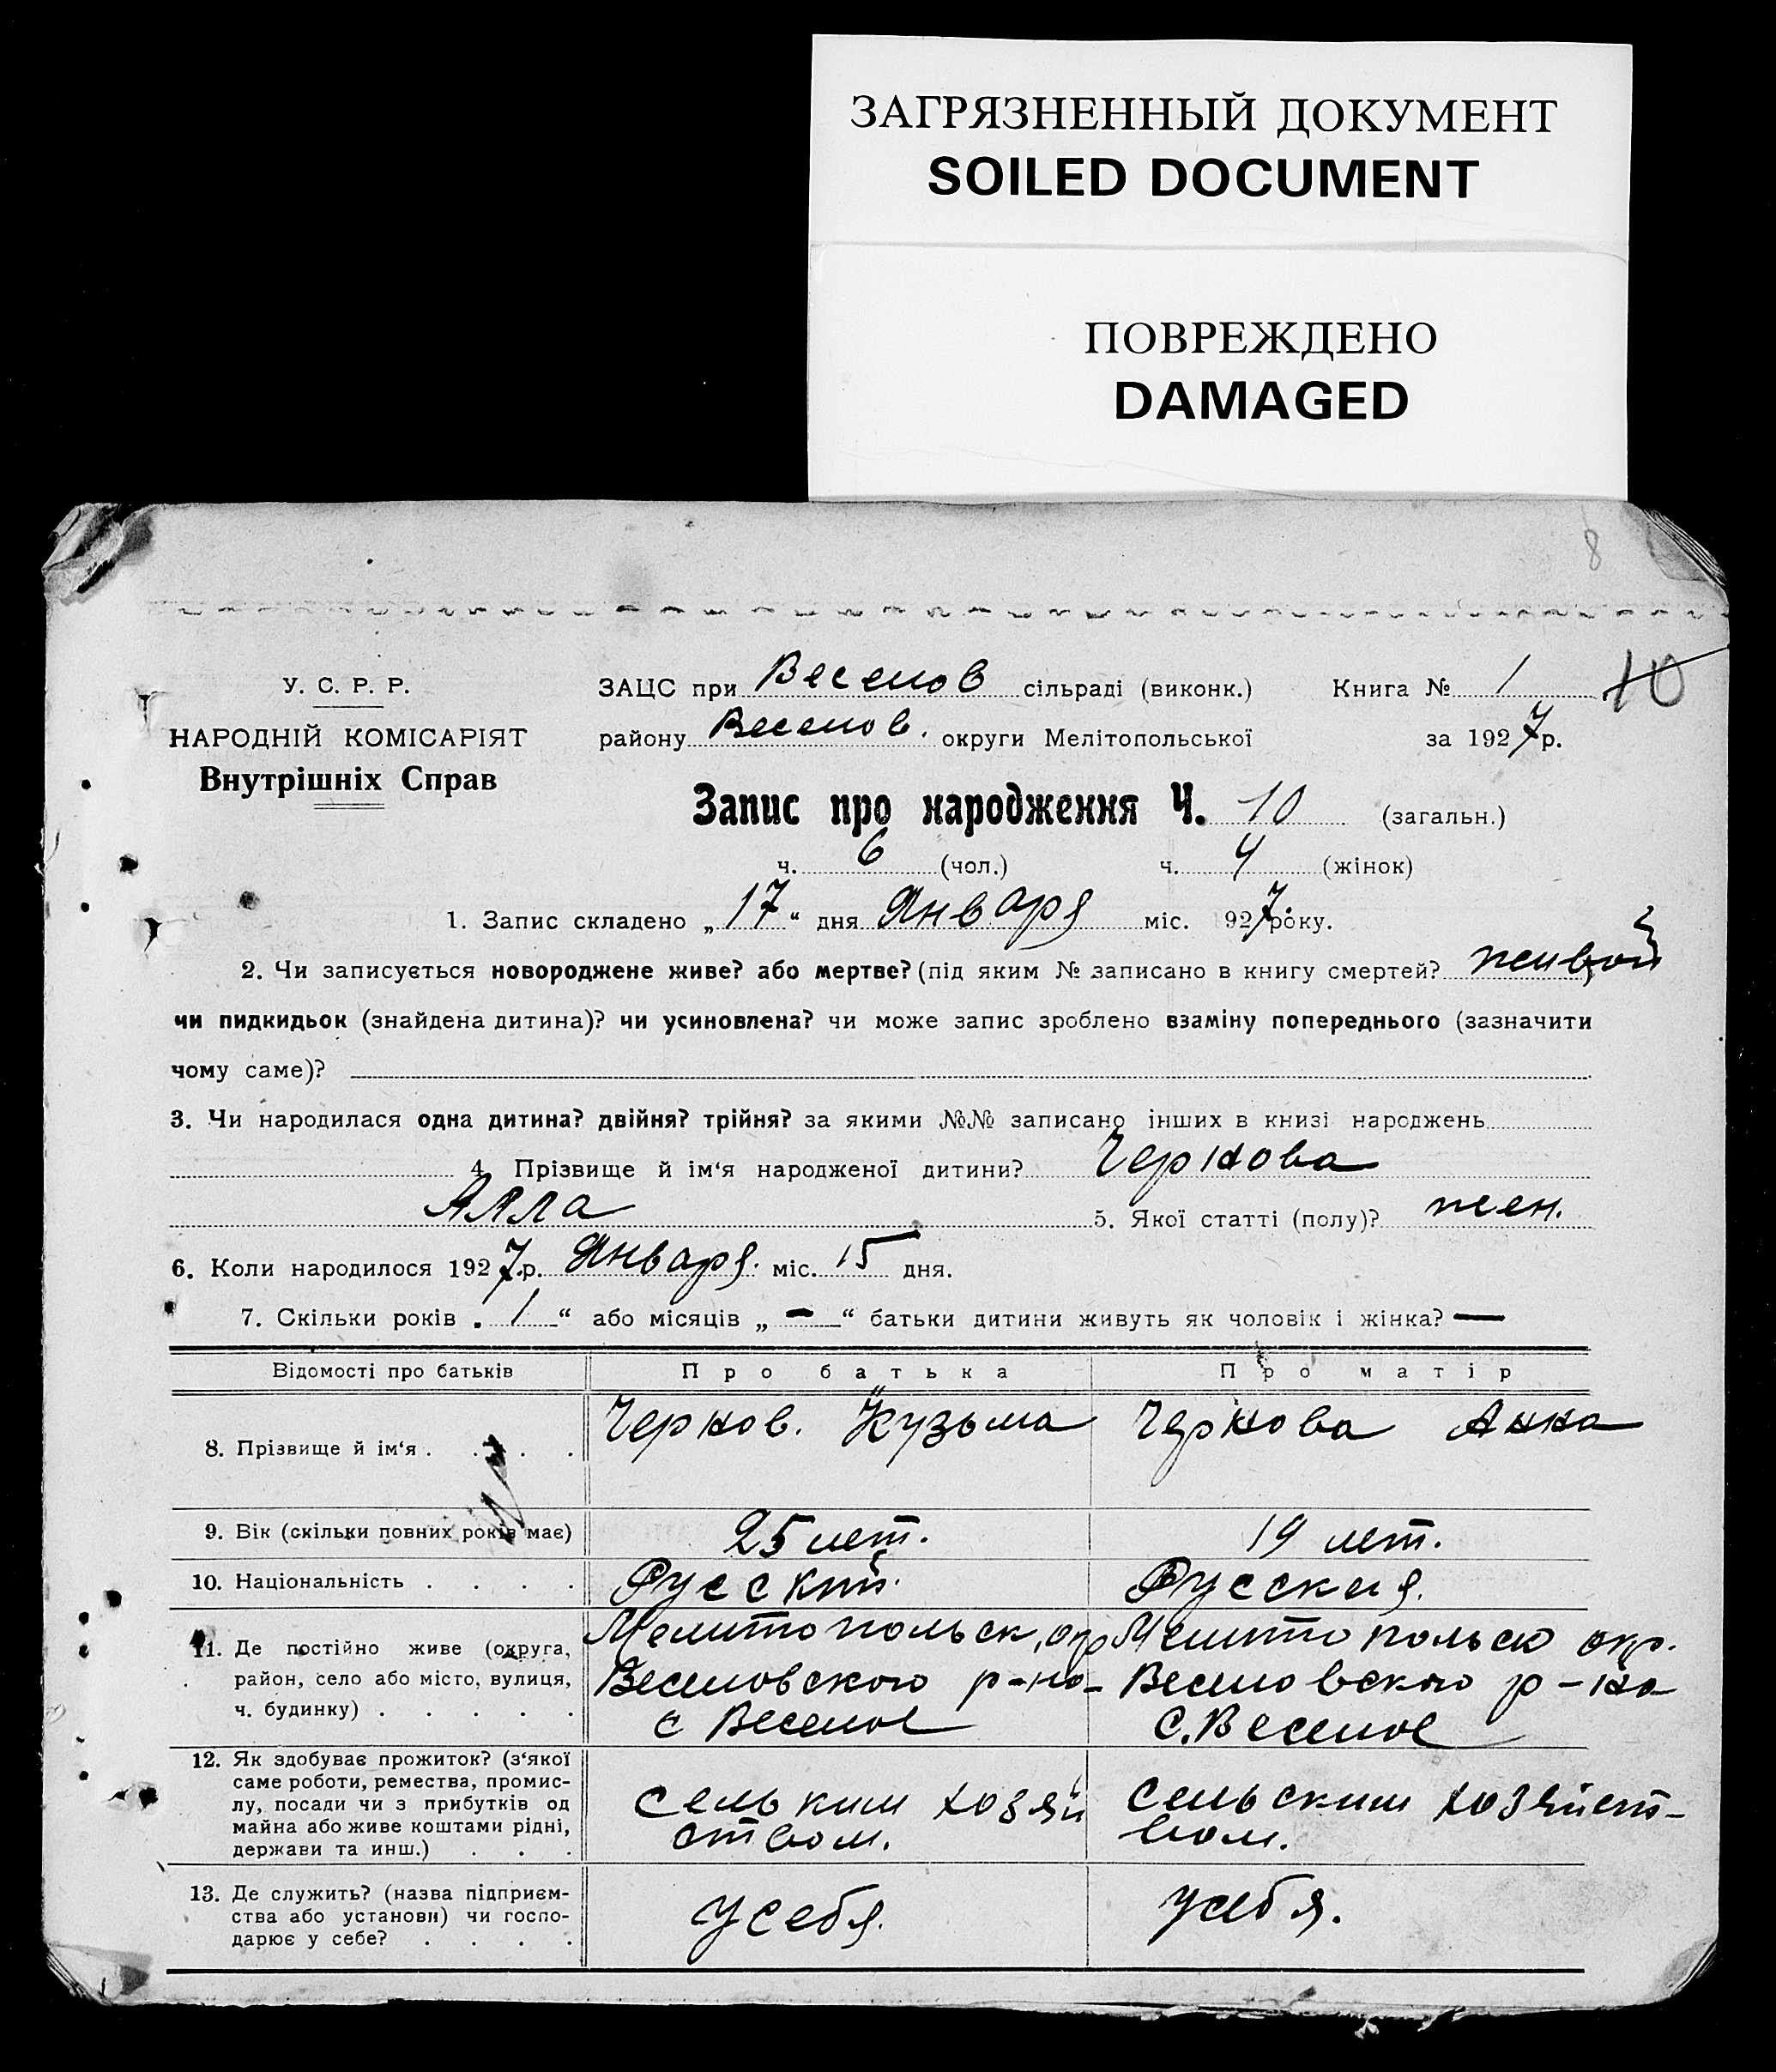 ЗАГРЯЗНЕННЫЙ ДОКУМЕНТ
SOILED DOCUMENT
ПОВРЕЖДЕНО
DAMAGED
8
У. С. Р. Р.
НАРОДНІЙ КОМІСАРІЯТ
Внутрішніх Справ
ЗАЦС при Веселов сільраді (виконк.) Книга № 1 10
району Веселов. округи Мелітопольської за 1927 р.
Запис про народження Ч. 10 (загальн.)
ч. 6 (чол.) ч. 4 (жінок)
1. Запис складено „17“ дня Января міс. 927 року.
2. Чи записується новороджене живе? або мертве? (під яким № записано в книгу смертей? живой)
чи пидкидьок (знайдена дитина)? чи усиновлена? чи може запис зроблено взаміну попереднього (зазначити
чому саме)?
3. Чи народилася одна дитина? двійня? трійня? за якими №№ записано інших в книзі народжень
4. Прізвище й ім‘я народженої дитини? Чернова
Алла 5. Якої статті (полу)? жен.
6. Коли народилося 1927.р. Января. міс. 15 дня.
7. Скільки років „1“ або місяців „-“ батьки дитини живуть як чоловік і жінка? —
Відомості про батьків Про батька Про матір
8. Прізвище й ім‘я . . . . Чернов. Кузьма Чернова Анна
9. Вік (скільки повних років має) 25 лет. 19 лет.
10. Національність . . . . Русский. Русская.
11. Де постійно живе (округа, Мелитопольск, окр Мелитопольск окр.
район, село або місто, вулиця, Веселовского р-на Веселовского р-на
ч. будинку) . . . . . с Веселое С. Веселое
12. Як здобуває прожиток? (з‘якої
саме роботи, ремества, промис-
лу, посади чи з прибутків од Сельким хозяй Сельским хозяйст-
майна або живе коштами рідні, ством. вом.
держави та инш.) . . .
13. Де служить? (назва підприєм-
ства або установи) чи госпо- У себя. У себя.
дарює у себе? . . . .